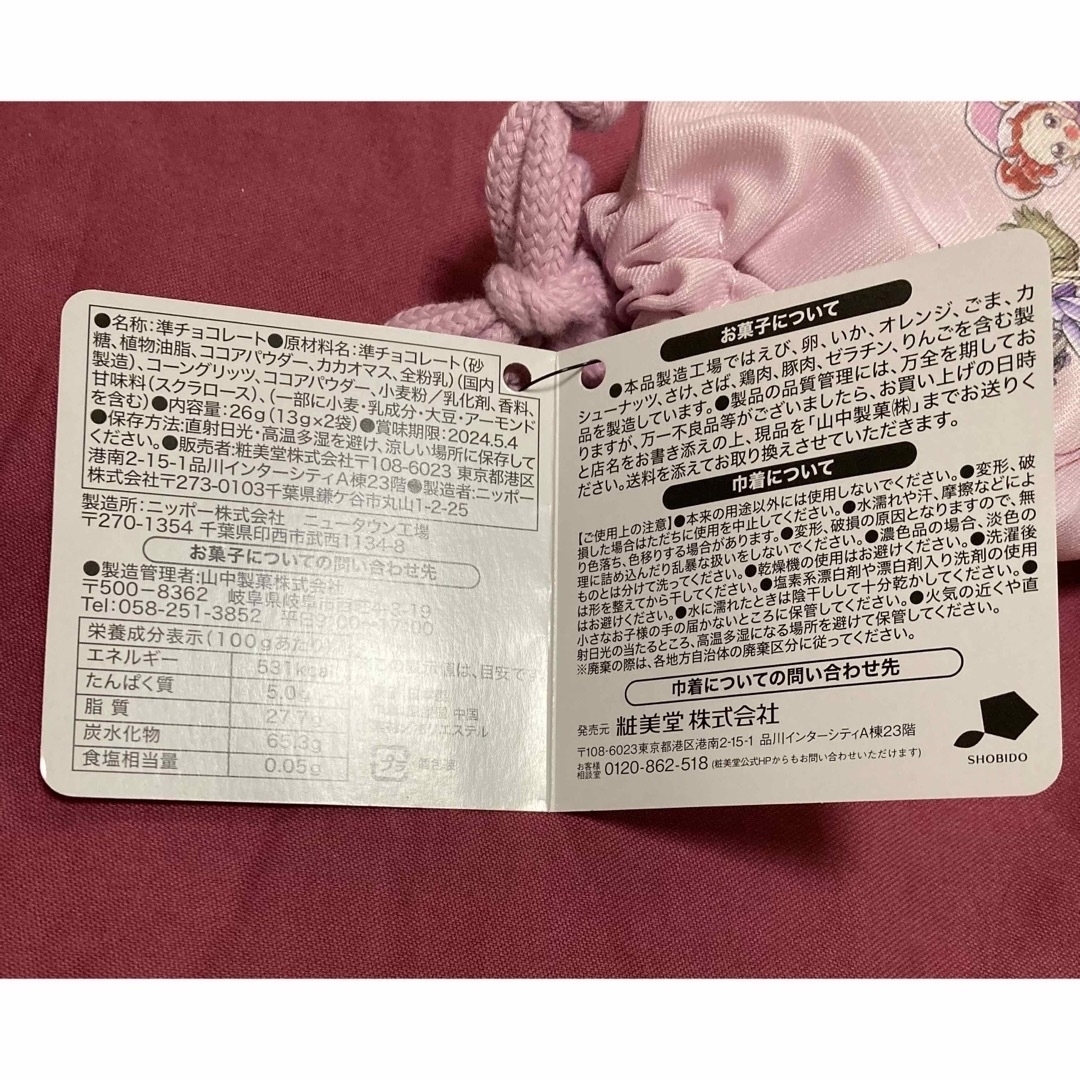 ●名称:準チョコレート●原材料名:準チョコレート(砂
糖、植物油脂、ココアパウダー、カカオマス、全粉乳)(国内
製造)、コーングリッツ、ココアパウダー、小麦粉/乳化剤、香料、
甘味料(スクラロース)、(一部に小麦・乳成分・大豆・アーモンド
を含む)●内容量:26g(13g×2袋)●賞味期限:2024.5.4
●保存方法:直射日光・高温多湿を避け、涼しい場所に保存して
ください。●販売者:粧美堂株式会社〒108-6023 東京都港区
港南2-15-1品川インターシティA棟23階●製造者:ニッポー
株式会社〒273-0103千葉県鎌ケ谷市丸山1-2-25
製造所:ニッポー株式会社 ニュータウン工場
〒270-1354 千葉県印西市武西1134-8
お菓子についての問い合わせ先
●製造管理者:山中製菓株式会社
〒500-8362 岐阜県岐阜市
Tel:058-251-3852
栄養成分表示(100gあたり)
エネルギー 531kcal
たんぱく質 5.0g
脂質 27.7g
炭水化物 65.3g
食塩相当量 0.05g
は、目安です
中国
エステル
プラ
お菓子について
●本品製造工場ではえび、卵、いか、オレンジ、ごま、カ
シューナッツ、さけ、さば、鶏肉、豚肉、ゼラチン、りんごを含む製
品を製造しています。●製品の品質管理には、万全を期してお
りますが、万一不良品等がございましたら、お買い上げの日時
と店名をお書き添えの上、現品を「山中製菓(株)」までお送りく
ださい。送料を添えてお取り換えさせていただきます。
巾着について
【ご使用上の注意】●本来の用途以外には使用しないでください。●変形、破
損した場合はただちに使用を中止してください。●水濡れや汗、摩擦などによ
り色落ち、色移りする場合があります。●変形、破損の原因となりますので、無
理に詰め込んだり乱暴な扱いをしないでください。●濃色品の場合、淡色の
ものとは分けて洗ってください。●乾燥機の使用はお避けください。●洗濯後
は形を整えてから干してください。●塩素系漂白剤や漂白剤入り洗剤の使用
はお避けください。●水に濡れたときは陰干しして十分乾かしてください。●
小さなお子様の手の届かないところに保管してください。●火気の近くや直
射日光の当たるところ、高温多湿になる場所を避けて保管してください。
※廃棄の際は、各地方自治体の廃棄区分に従ってください。
巾着についての問い合わせ先
発売元 粧美堂 株式会社
〒108-6023東京都港区港南2-15-1 品川インターシティA棟23階
お客様相談室 0120-862-518 (粧美堂公式HPからもお問い合わせいただけます)
SHOBIDO